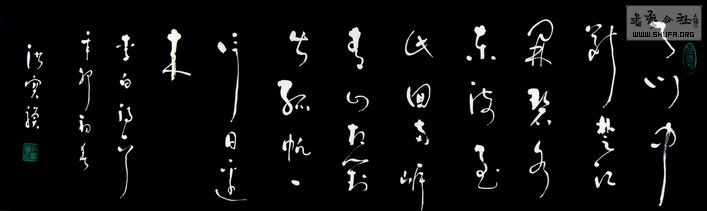 天门中
断楚江
開碧水
东流至
此回两岸
青山相对
出孤帆一
片日边
来
李白诗
辛卯初春
洪
書藝公社
WWW.SHUFA.ORG